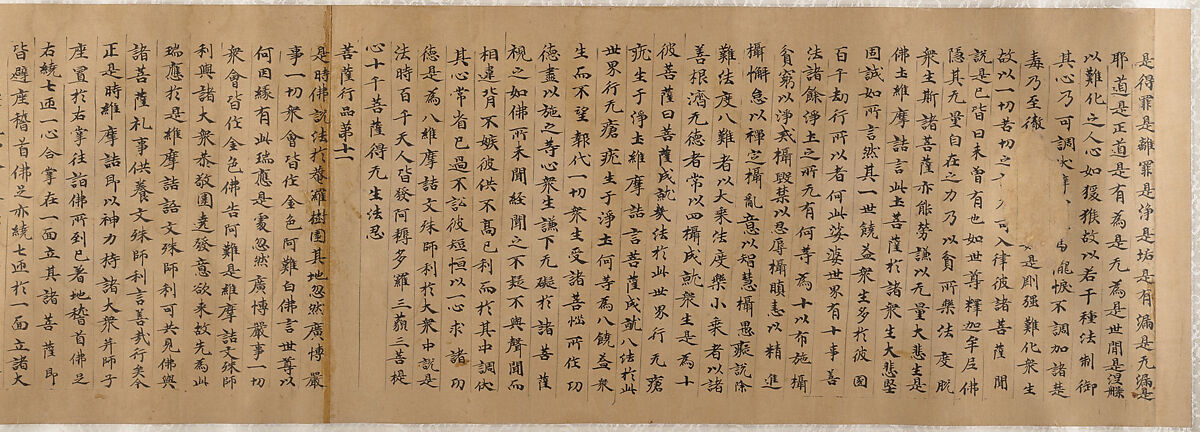 是得罪是離罪是淨是垢是有漏是无漏是
耶道是正道是有為是无為是世間是涅槃
以難化之人心如猨猴故以若干種法制御
其心乃可調 悷不調加諸楚
毒乃至徹 是剛强難化衆生
故以一切苦切之 可入律彼諸菩薩聞
說是已皆曰未曾有也如世尊釋迦牟尼佛
隱其无量自在之力乃以貧所樂法度脫
衆生斯諸菩薩亦能勞謙以无量大悲生是
佛土維摩詰言此土菩薩於諸衆生大悲堅
固誠如所言然其一世饒益衆生多於彼國
百千劫行所以者何此娑婆世界有十事善
法諸餘淨土之所无有何等為十以布施攝
貧窮以淨戒攝毀禁以忍辱攝瞋恚以精進
攝懈怠以禪定攝亂意以智慧攝愚癡說除
難法度八難者以大乘法度樂小乘者以諸
善根濟无德者常以四攝成就衆生是為十
彼菩薩曰菩薩成就幾法於此世界行无瘡
疣生于淨土維摩詰言菩薩成就八法於此
世界行无瘡疣生于淨土何等為八饒益衆
生而不望報代一切衆生受諸苦惱所作功
德盡以施之等心衆生謙下无礙於諸菩薩
視之如佛所未聞經聞之不疑不與聲聞而
相違背不嫉彼供不高己利而於其中調伏
其心常省己過不訟彼短恒以一心求諸功
德是為八維摩詰文殊師利於大衆中說是
法時百千天人皆發阿耨多羅三藐三菩提
心十千菩薩得无生法忍
菩薩行品第十一
是時佛說法於菴羅樹園其地忽然廣博嚴
事一切衆會皆作金色阿難白佛言世尊以
何因緣有此瑞應是處忽然廣博嚴事一切
衆會皆作金色佛告阿難是維摩詰文殊師
利與諸大衆恭敬圍遶發意欲來故先為此
瑞應於是維摩詰語文殊師利可共見佛與
諸菩薩礼事供養文殊師利言善哉行矣今
正是時維摩詰即以神力持諸大衆并師子
座置於右掌往詣佛所到已著地稽首佛足
右繞七迊一心合掌在一面立其諸菩薩即
皆避座稽首佛足亦繞七迊於一面立諸大